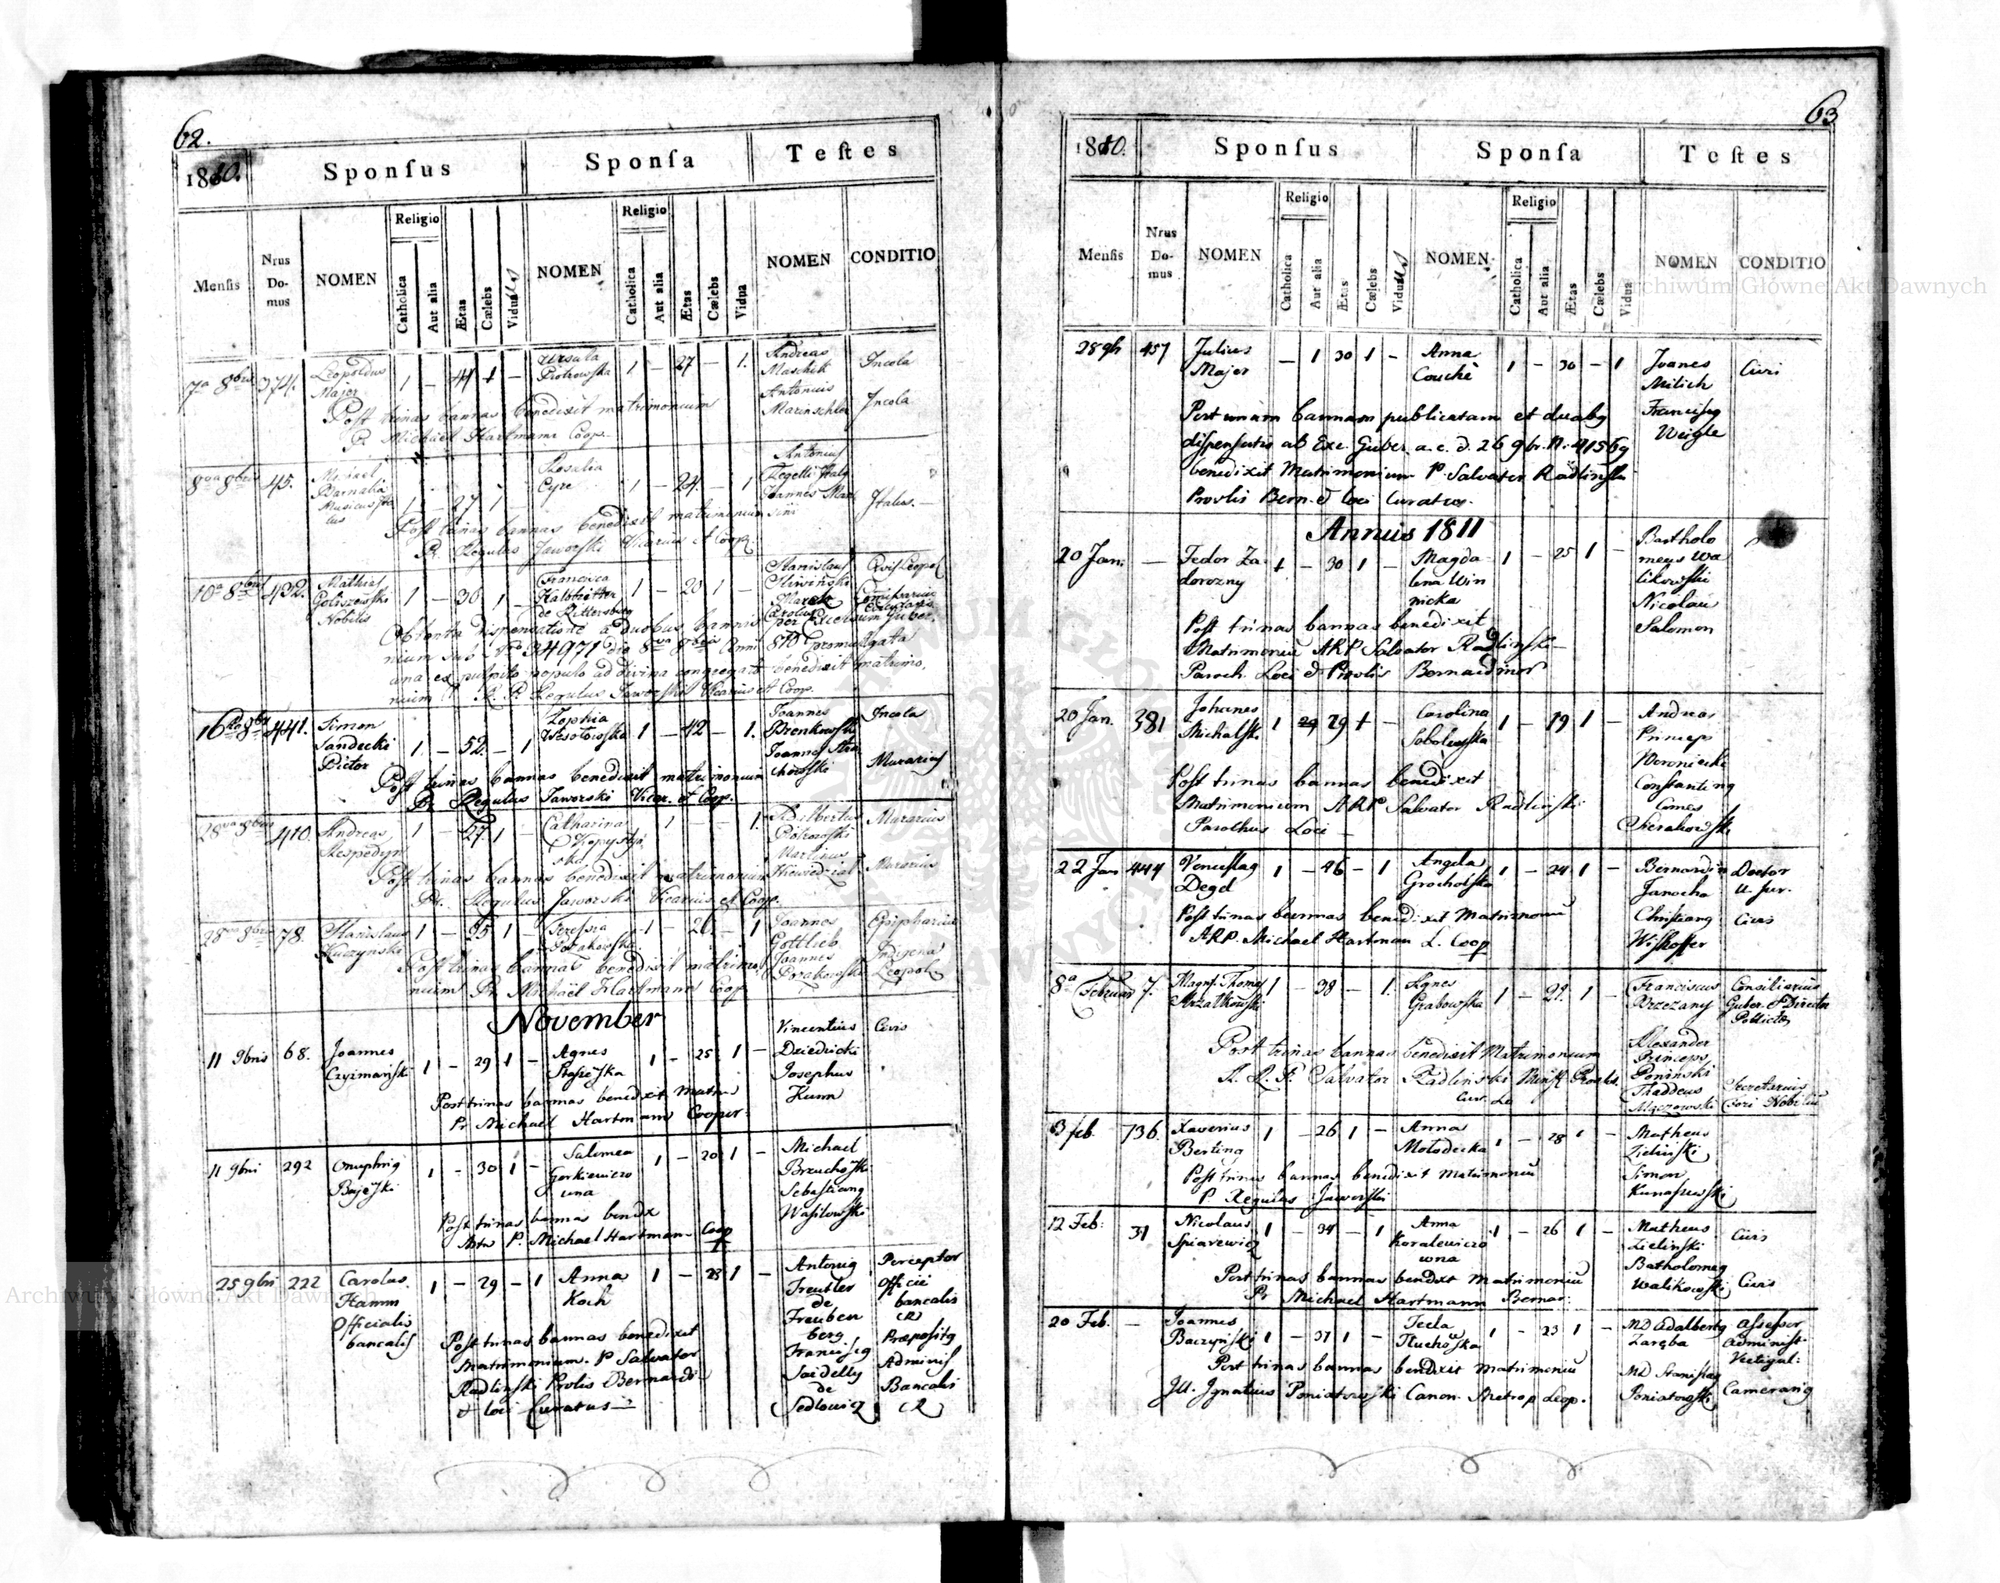 62.
1810.
Sponſus
Sponſa
Teſtes
Menſis
Nrus Do-mus
NOMEN
Religio
Catholica
Aut alia
Ætas
Cælebs
Viduus
NOMEN
Religio
Catholica
Aut alia
Ætas
Cælebs
Vidua
NOMEN
CONDITIO
7a 8bris 374. Leopoldus 1 – 44 1 – Ursula 1 – 27 – 1. Andreas Incola
Major Piotrowska Maschik
Antonius Incola
Post trinas bannas benedixit matrimonium
P. Michael Hartmann Coop.
8va 8bris 45. Rosalia Antonius
Barnaba Cyre 1 – 24 – 1
Musicus 1 – 27 1 Joannes Italus.
Post trinas bannas benedixit matrimonium
Pr. Regulus Jaworski Vicarius et Coop.
10a 8bris 432. Mathias 1 – 30 1 – Francisca 1 – 20 1 – Stanislaus Civis Leopol
Goliszewski Sliwinski
Nobilis de Rittersberg Carolus
Obtenta dispensatione a duobus bannis per Excelsum Guber
nium sub Nro 34971 dto 8va 8bris Anni 810
una ex pulpito populo ad divina congregato benedixit matrimo
nium R. P. Regulus Jaworski Vicarius et Coop.
16ta 8bris 441. Simon 1 – 52 – 1 Zophia 1 – 42 – 1. Joannes Incola
Sandecki Wesołowska Bronkowski
Pictor Joannes Murarius
Post trinas bannas benedixit matrimonium
Pr. Regulus Jaworski Vicar. et Coop.
28va 8bris 410. Andreas 1 – 27 1 – Catharina 1 – – 1. Adilbertus Murarius
Piotrowski
Martinus Murarius
Post trinas bannas benedixit matrimonium
Pr. Regulus Jaworski Vicarius et Coop.
28va 8bris 78. Stanislaus 1 – 25 1 – Teressia 1 – 26 – 1 Joannes
Kuczynski Gottlieb
Joannes Indigena
Leopol.
Post trinas bannas benedixit matrimo
nium Pr. Michaël Hartmann Coop
November
11 9bris 68. Joannes 1 – 29 1 – Agnes 1 – 25 1 – Vincentius Civis
Czyżmański Dziedzicki
Josephus
Kunn
Post trinas bannas benedixit Matri
Pr. Michael Hartmann Cooper.
11 9bris 292 Onuphrig 1 – 30 1 – Salomea 1 – 20 1 – Michael
Bajeski Gorkiewiczo
wna Sebastiang
Wasilowski
Post trinas bannas bendx
P. Michael Hartman Coop
25 9bri 222 Carolus 1 – 29 – 1 Anna 1 – 23 1 – Antonig Perceptor
Hamm Koch Freutler Officii
Officialis de bancalis
bancalis Freuben
berg Præpositg
Francisig Adminis
Bancalis
de
Sedlowicz
Post trinas bannas benedixit
Matrimonium P Salvator
Radlinski Prolis Bernardi
et loci Curatus
63
1810.
Sponſus
Sponſa
Teſtes
Menſis
Nrus Do-mus
NOMEN
Religio
Catholica
Aut alia
Ætas
Cælebs
Viduus
NOMEN
Religio
Catholica
Aut alia
Ætas
Cælebs
Vidua
NOMEN
CONDITIO
28 9br 457 Julius – 1 30 1 – Anna 1 – 30 – 1 Joanes Civi
Major Couché Milich
Francisg
Weigle
Post unam bannam publicatam et duabg
dispensatis ab Exc. Guber. a. c. d. 26 9br. N: 41569
benedixit Matrimonium P. Salvator Radlinski
Provlis Bern. et loci Curatus.
Annus 1811
20 Jan: — Fedor Za 1 – 30 1 – Magda 1 – 25 1 – Bartholo
dorozny lena Win meus Wa
nicka likowski
Nicolaus
Salomon
Post trinas bannas benedixit
Matrimoniū ARP Salvator Radlinski
Paroch. Loci et Provlis Bernardinor
20 Jan. 381 Johanes 1 29 29 1 – Carolina 1 – 19 1 – Andreas
Michalski Sobolewska Princeps
Woroniecki
Constanting
Comes
Sierakowski
Post trinas bannas benedixit
Matrimonium ARP Salvator Radlinski
Parochus Loci
22 Jan 444 Venceslag 1 – 46 – 1 Angela 1 – 24 1 – Bernardin Doctor
Degd Grocholska Janocha U. Jur.
Christiang Civis
Wishoffer
Post trinas bannas benedixit Matrimoniū
ARP. Michael Hartman L. Coop
8a Februar 7. Magnf. Thomas 1 – 38 – 1. Agnes 1 – 29. 1 – Franciscus Consiliarius
Grabowska Brzezany Guber. et Director
Politiæ
Alexander
Princeps
Poninski
Thaddeus Secretarius
Fori Nobiliū
Post trinas bannas benedixit Matrimonium
A. R. P. Salvator Radlinski
13 feb. 736. Xaverius 1 – 26 1 – Anna 1 – 28 1 – Matheus
Berting Mołodecka Zielinski
Simon
Kunaszewski
Post trinas bannas benedixit Matrimoniū
P. Regulus Jaworski
12 Feb: 31 Nicolaus 1 – 34 – 1 Anna 1 – 26 1 – Matheus Civis
Spiarewicz Koralewiczo Zielinski
wna Bartholomeg
Walikowski Civis
Post trinas bannas bendixt Matrimoniū
Pr Michael Hartmann Bernar:
20 Feb. — Joannes 1 – 37 1 – Tecla 1 – 23 1 – MD Adalbertg Assessor
Baczyński Zaręba Administ.
Vectigal:
MD Stanislag
Poniatowski Camerarig
Post trinas bannas bendixit Matrimoniū
Ill. Ignatius Poniatowski Canon. Metrop Leop.
Archiwum Główne Akt Dawnych
Archiwum Główne Akt Dawnych